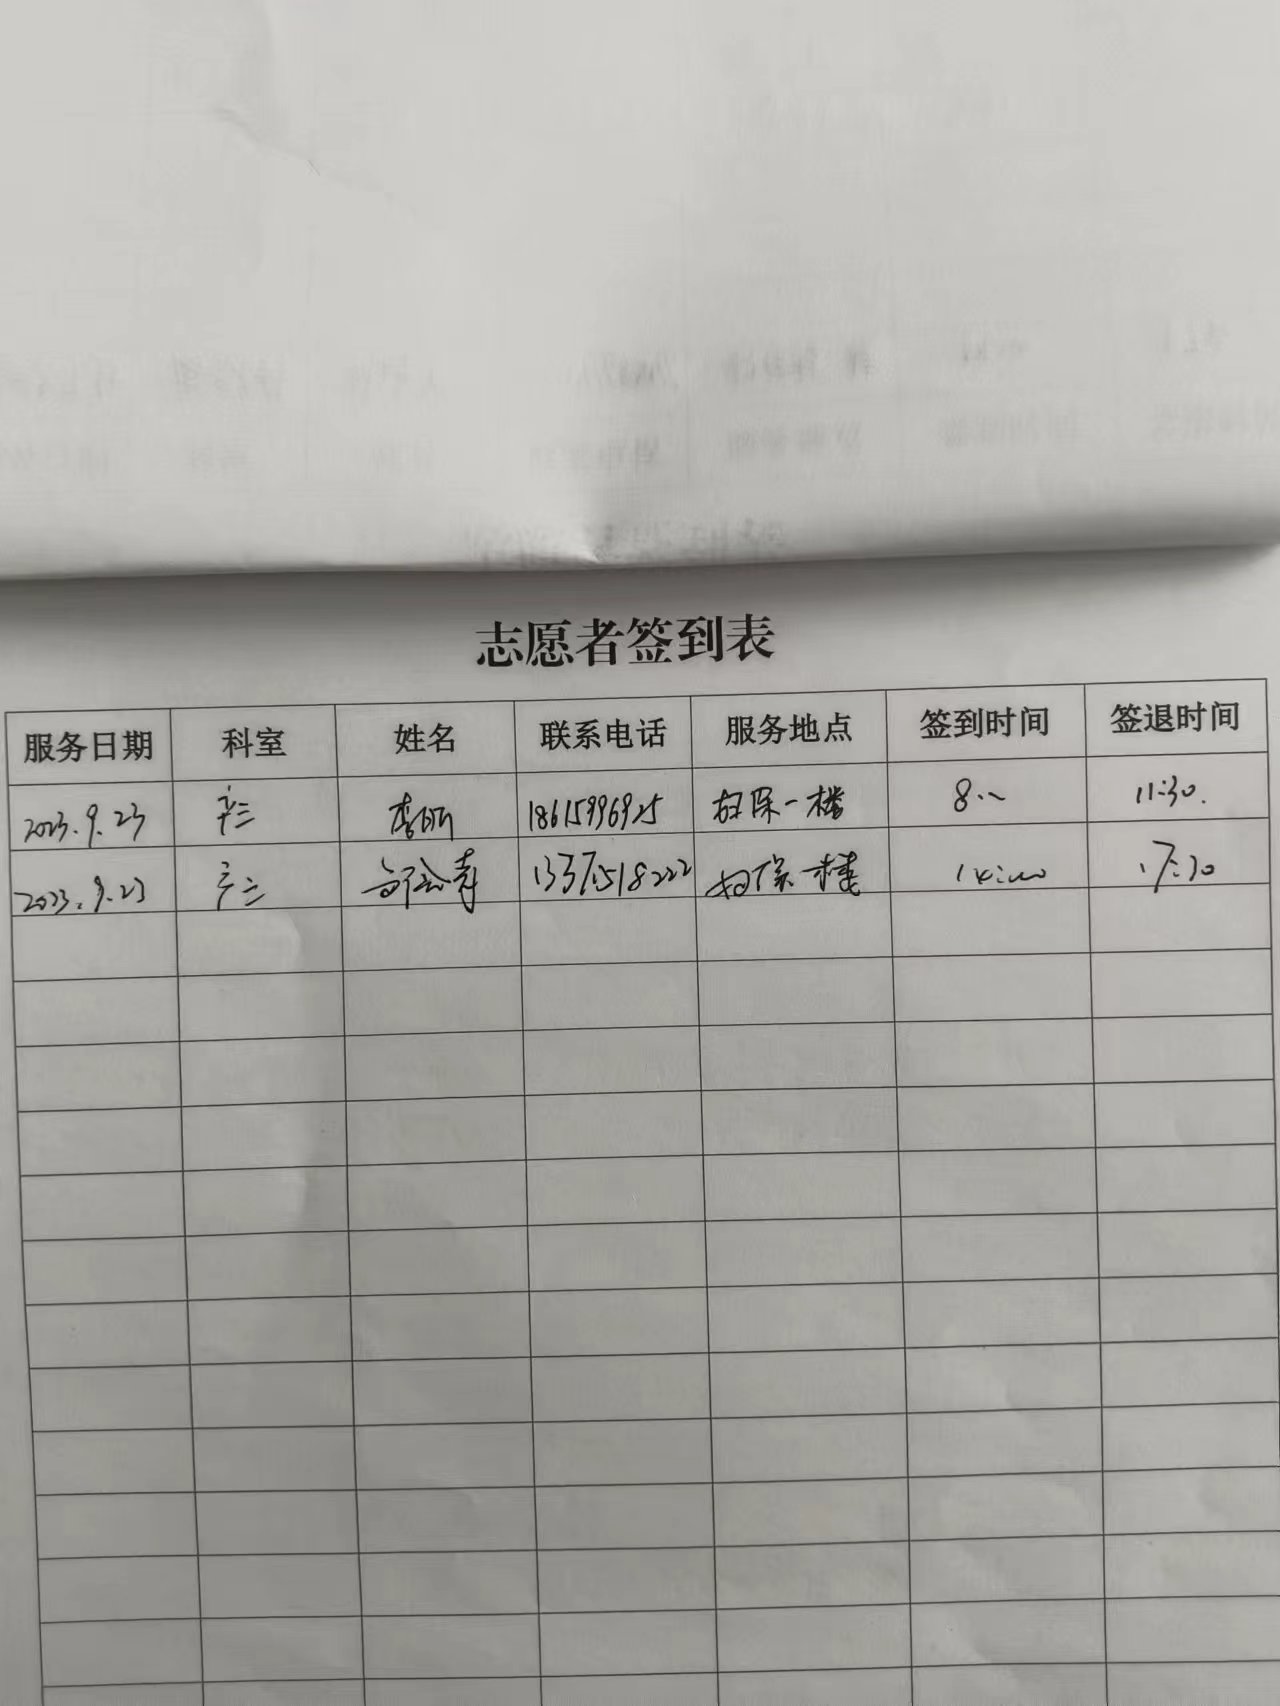 志愿者签到表
服务日期 科室 姓名 联系电话 服务地点 签到时间 签退时间
2023.9.23 产三 李 18615996925 妇保一楼 8:00 11:30.
2023.9.23 产三 1337518222 妇保一楼 14:00 17:30